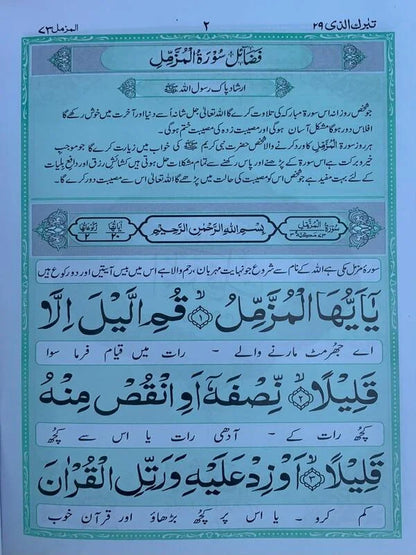 تبٰرک الذی ۲۹ ۲ المزمل ۷۳
فَضَائِل سُوْرَۃُ الْمُزَّمِّل
ارشاد پاک رسول اللہ ﷺ
جو شخص روزانہ اس سورۃ مبارکہ کی تلاوت کرے گا اللہ تعالیٰ جل شانہ اُسے دنیا اور آخرت میں خوش رکھے گا
افلاس دور ہوگا مشکل آسان ہوگی اور مصیبت زدہ کی مصیبت ختم ہوگی۔
ہر روز سورۃ المزمل کا ورد کرنے والا شخص حضرت نبی کریم ﷺ کی خواب میں زیارت کرے گا جو موجب
خیر و برکت ہے اس سورۃ کے پڑھنے اور پاس رکھنے سے تمام مشکلات حل ہوتی ہیں کشائش رزق اور دافع بلیات
کے لئے بہت مفید ہے جو شخص اس کو مصیبت کی حالت میں پڑھے گا اللہ تعالیٰ اس سے مصیبت دور کرے گا۔
سُوْرَۃُ الْمُزَّمِّل بِسْمِ اللّٰهِ الرَّحْمٰنِ الرَّحِیْمِ اٰیاتها ۲۰ رکوعاتها ۲
سورۃ مزمل مکی ہے اللہ کے نام سے شروع جو نہایت مہربان، رحم والا ہے اس میں بیس آیتیں اور دو رکوع ہیں
یٰۤاَیُّهَا الْمُزَّمِّلُ ۙ﴿۱﴾ قُمِ الَّیْلَ اِلَّا
اے جھرمٹ مارنے والے - رات میں قیام فرما سوا
قَلِیْلًا ۙ﴿۲﴾ نِّصْفَهٗۤ اَوِ انْقُصْ مِنْهُ
کچھ رات کے - آدھی رات یا اس سے کچھ
قَلِیْلًا ۙ﴿۳﴾ اَوْ زِدْ عَلَیْهِ وَ رَتِّلِ الْقُرْاٰنَ
کم کرو - یا اس پر کچھ بڑھاؤ اور قرآن خوب